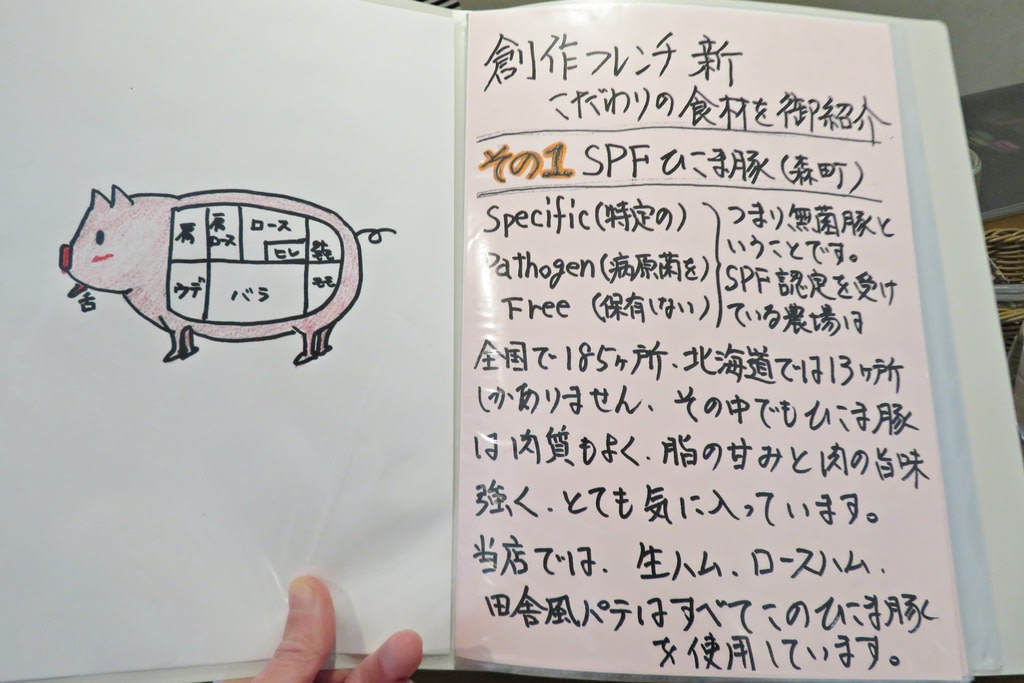 肩
肩ロース
ロース
ヒレ
ウデ
バラ
モモ
舌
創作フレンチ 新
こだわりの食材を御紹介
その1 SPF ひこま豚(森町)
Specific(特定の)
Pathogen(病原菌を)
Free (保有しない)
つまり無菌豚と
いうことです。
SPF認定を受け
ている農場は
全国で185ヶ所、北海道では13ヶ所
しかありません、その中でもひこま豚
は肉質もよく、脂の甘みと肉の旨味
強く、とても気に入っています。
当店では、生ハム、ロースハム、
田舎風パテはすべてこのひこま豚
を使用しています。